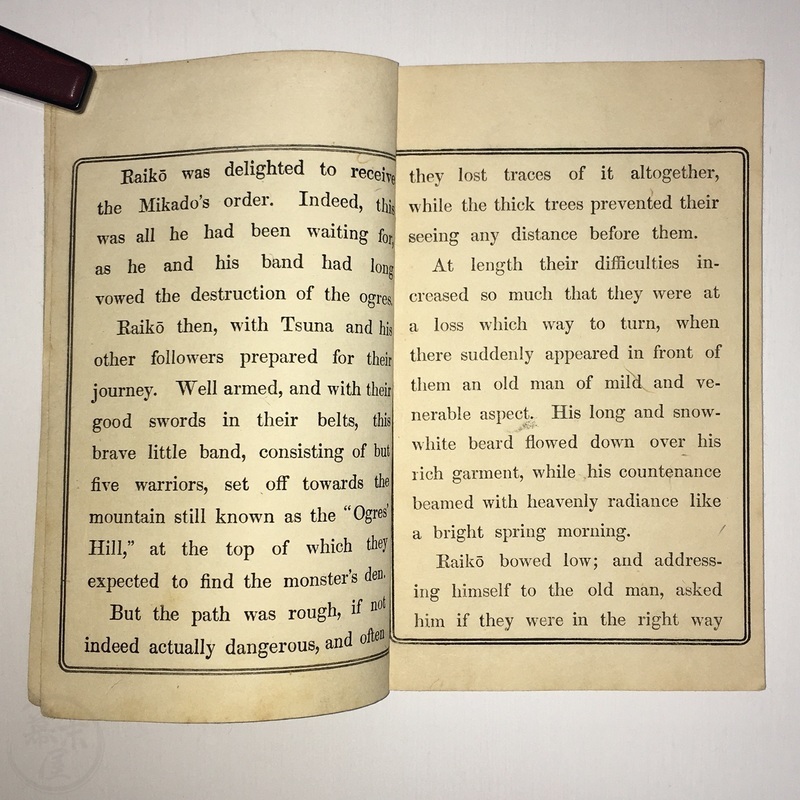 Raikō was delighted to receive
the Mikado's order. Indeed, this
was all he had been waiting for,
as he and his band had long
vowed the destruction of the ogres.
Raikō then, with Tsuna and his
other followers prepared for their
journey. Well armed, and with their
good swords in their belts, this
brave little band, consisting of but
five warriors, set off towards the
mountain still known as the “Ogres'
Hill,” at the top of which they
expected to find the monster's den.
But the path was rough, if not
indeed actually dangerous, and often
they lost traces of it altogether,
while the thick trees prevented their
seeing any distance before them.
At length their difficulties in-
creased so much that they were at
a loss which way to turn, when
there suddenly appeared in front of
them an old man of mild and ve-
nerable aspect. His long and snow-
white beard flowed down over his
rich garment, while his countenance
beamed with heavenly radiance like
a bright spring morning.
Raikō bowed low; and address-
ing himself to the old man, asked
him if they were in the right way